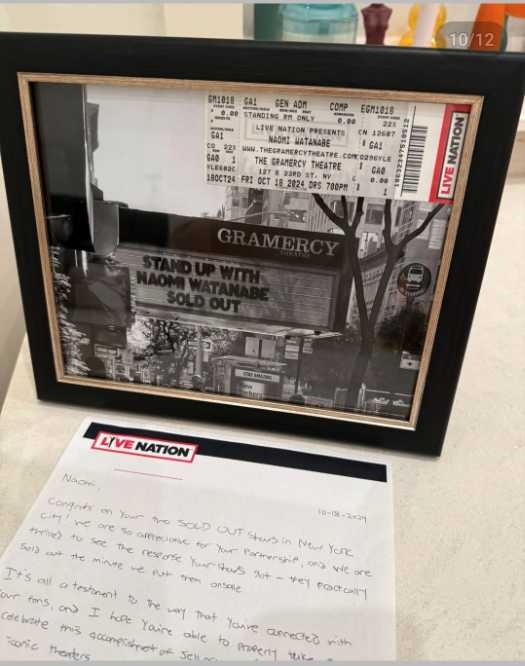 10/12
GM1018 GA1 GEN ADM COMP EGM1018
$ 0.00 STANDING RM ONLY 0.00 221
LIVE NATION PRESENTS CN 12687
GA1 NAOMI WATANABE GA1
WWW.THEGRAMERCYTHEATRE.COM
GA0 1 THE GRAMERCY THEATRE GA0
127 E 23RD ST. NY 0.00
18OCT24 FRI OCT 18 2024 DRS 700PM 1
LIVE NATION
GRAMERCY
THEATRE
STAND UP WITH
NAOMI WATANABE
SOLD OUT
LIVE NATION
Naomi,
10-18-2024
Congrats on your two SOLD OUT shows in New York
City! We are so appreciative for your partnership, and we are
thrilled to see the response your shows got - they practically
sold out the minute we put them onsale
It's all a testament to the way that you've connected with
your fans, and I hope you're able to properly take
celebrate this accomplishment of
iconic theaters